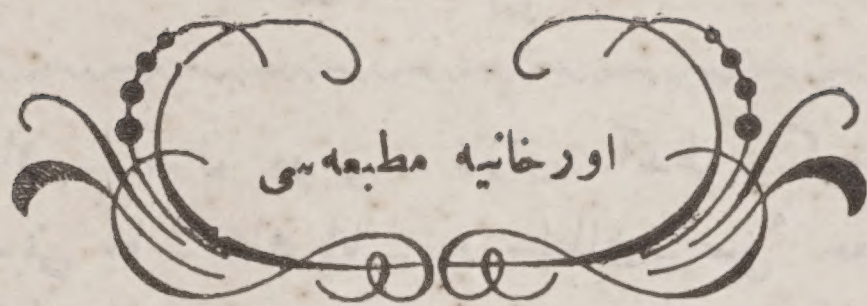 اورخانیه مطبعه‌سی